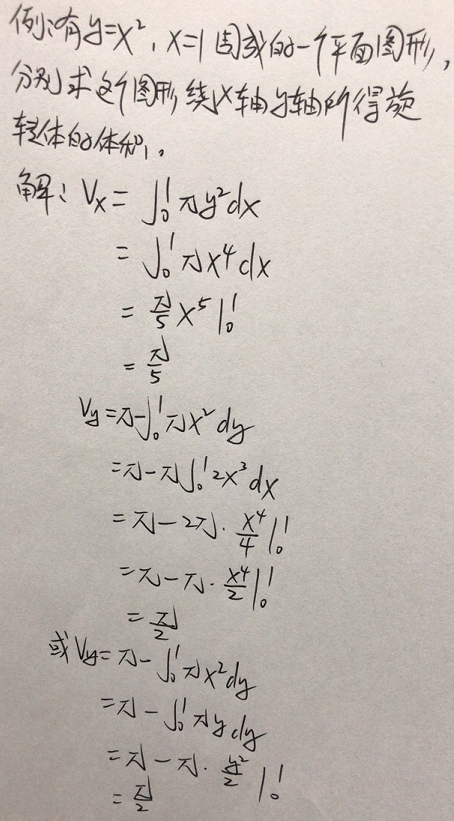 例:有y=x², x=1围成的一个平面图形,
分别求这个图形绕x轴y轴所得旋
转体的体积。
解: Vx = ∫₀¹ πy²dx
= ∫₀¹ πx⁴dx
= π/5 x⁵|₀¹
= π/5
Vy = π-∫₀¹ πx²dy
= π-π∫₀¹ 2x³dx
= π-2π· x⁴/4|₀¹
= π-π· x⁴/2|₀¹
= π/2
或 Vy = π-∫₀¹ πx²dy
= π-∫₀¹ πydy
= π-π· y²/2|₀¹
= π/2